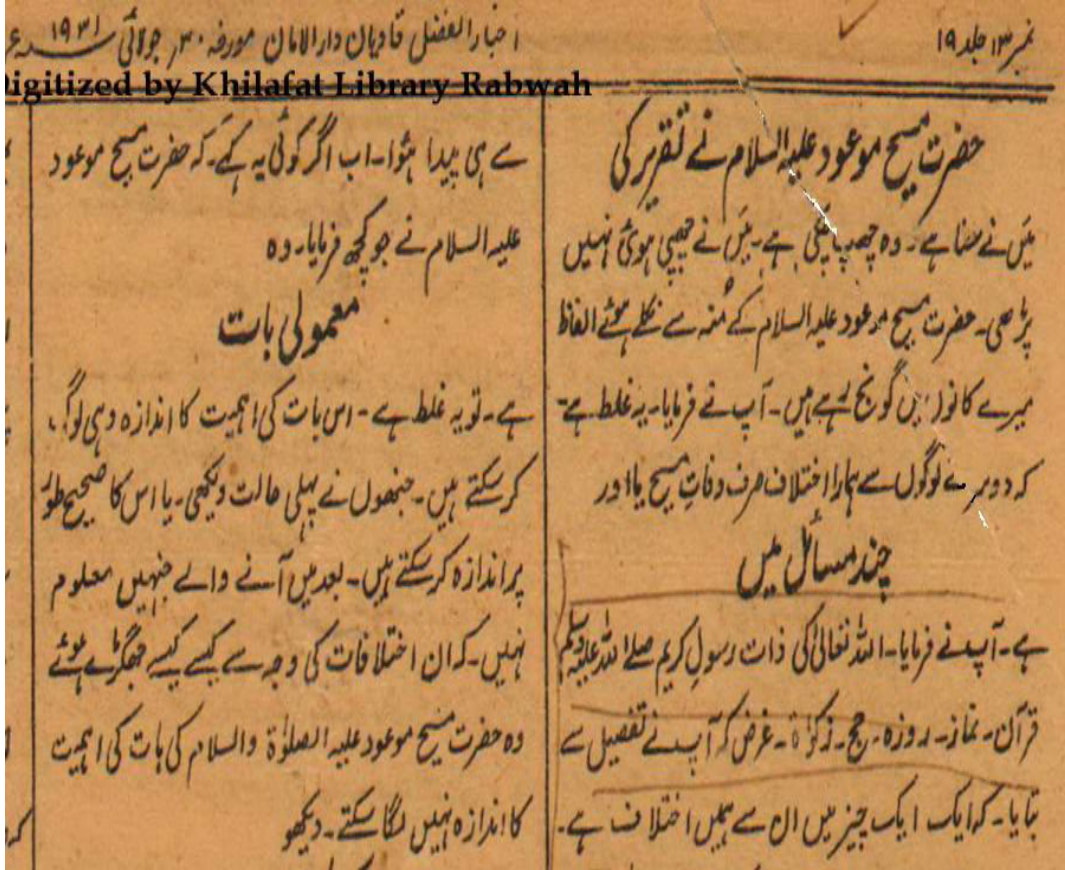 نمبر ۱۳ جلد ۱۹
اخبار الفضل قادیان دارالامان مورخہ ۳۰ جولائی ۱۹۳۱ء
Digitized by Khilafat Library Rabwah
حضرت مسیح موعود علیہ السلام نے تقریر کی
میں نے سنا ہے۔ وہ چھپ چکی ہے۔ میں نے چھپی ہوئی نہیں
پڑھی۔ حضرت مسیح موعود علیہ السلام کے مُنہ سے نکلے ہوئے الفاظ
میرے کانوں میں گونج رہے ہیں۔ آپ نے فرمایا۔ یہ غلط ہے۔
کہ دوسرے لوگوں سے ہمارا اختلاف صرف وفاتِ مسیح یا اور
چند مسائل میں
ہے۔ آپ نے فرمایا۔ اللہ تعالیٰ کی ذات رسولِ کریم صلے اللہ علیہ وسلم
قرآن۔ نماز۔ روزہ۔ حج۔ زکوٰۃ۔ غرض کہ آپ نے تفصیل سے
بتایا۔ کہ ایک ایک چیز میں ان سے ہمیں اختلاف ہے۔
سے ہی پیدا ہؤا۔ اب اگر کوئی یہ کہے۔ کہ حضرت مسیح موعود
علیہ السلام نے جو کچھ فرمایا۔ وہ
معمولی بات
ہے۔ تو یہ غلط ہے۔ اس بات کی اہمیت کا اندازہ وہی لوگ
کر سکتے ہیں۔ جنھوں نے پہلی حالت دیکھی۔ یا اس کا صحیح طور
پر اندازہ کر سکتے ہیں۔ بعد میں آنے والے جنہیں معلوم
نہیں۔ کہ ان اختلافات کی وجہ سے کیسے کیسے جھگڑے ہوئے
وہ حضرت مسیح موعود علیہ الصلوٰۃ والسلام کی بات کی اہمیت
کا اندازہ نہیں لگا سکتے۔ دیکھو